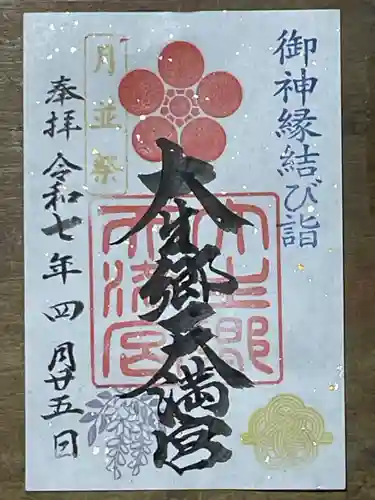 御神縁結び詣
大生郷天満宮
月並祭
奉拝 令和七年 四月廿五日